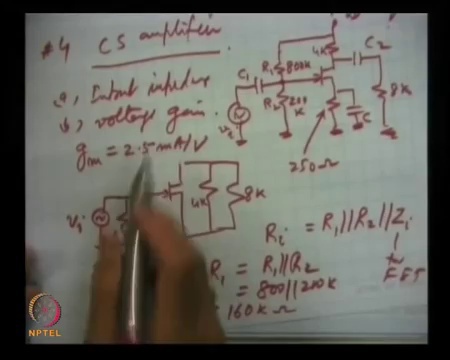 #4 CS amplifier.
a, Input impedance
b, voltage gain.
gm = 2.5 mA/V
4K
C2
R1
800K
C1
R2
200
K
8K
C
250Ω
Vi
4K
8K
Ri = R1 || R2 || Zi
FET
R1 = R1 || R2
= 800 || 200K
= 160KΩ
NPTEL